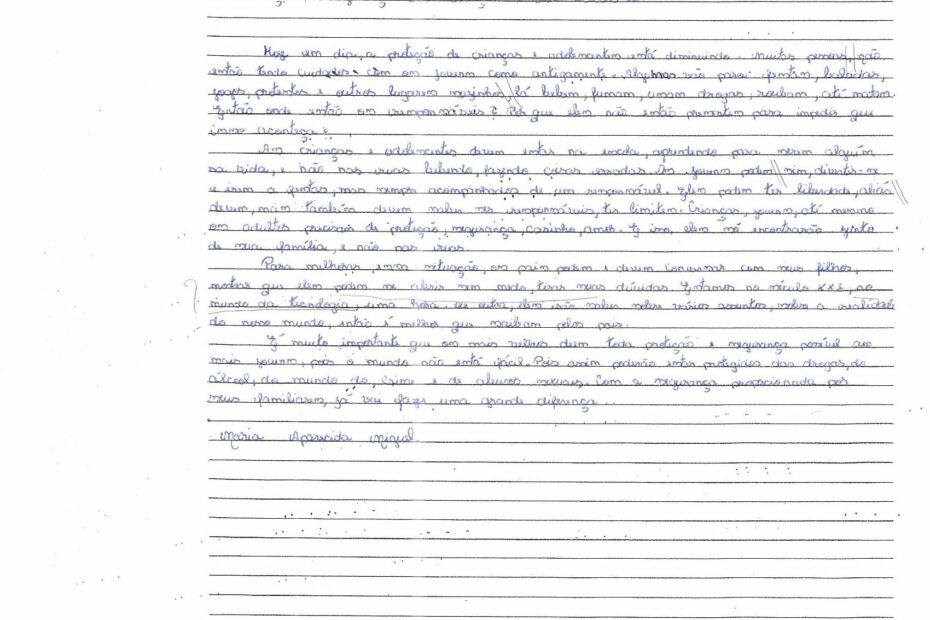 Hoje em dia, a proteção de crianças e adolescentes está diminuindo. Muitas pessoas, não
estão tendo cuidados com os jovens como antigamente. Algumas vão para: festas, baladas,
jogos, protestos e outros lugares sozinhos, lá bebem, fumam, usam drogas, roubam, até matam.
Então onde estão os responsáveis? Por que eles não estão presentes para impedir que
isso aconteça?
As crianças e adolescentes devem estar na escola, aprendendo para serem alguém
na vida, e não nas ruas bebendo, fazendo coisas erradas. Os jovens podem sim, divertir-se
e irem a festas, mas sempre acompanhados de um responsável. Eles podem ter liberdade, aliás
devem, mas também devem saber ser responsáveis, ter limites. Crianças, jovens, até mesmo
os adultos precisam de proteção, segurança, carinho, amor. E isso, eles só encontrarão junto
de sua família, e não nas ruas.
Para melhorar essa situação, os pais podem e devem conversar com seus filhos,
mostrar que eles podem se abrir sem medo, tirar suas dúvidas. Estamos no século XXI, no
mundo da tecnologia, uma hora ou outra, eles irão saber sobre vários assuntos, sobre a realidade
do nosso mundo, então é melhor que saibam pelos pais.
É muito importante que os mais velhos deem toda proteção e segurança possível aos
mais jovens, pois o mundo não está fácil. Pois assim poderão estar protegidos das drogas, do
álcool, do mundo do crime e de abusos sexuais. Com a segurança proporcionada por
seus familiares, já vai fazer uma grande diferença.
Maria Aparecida Miguel